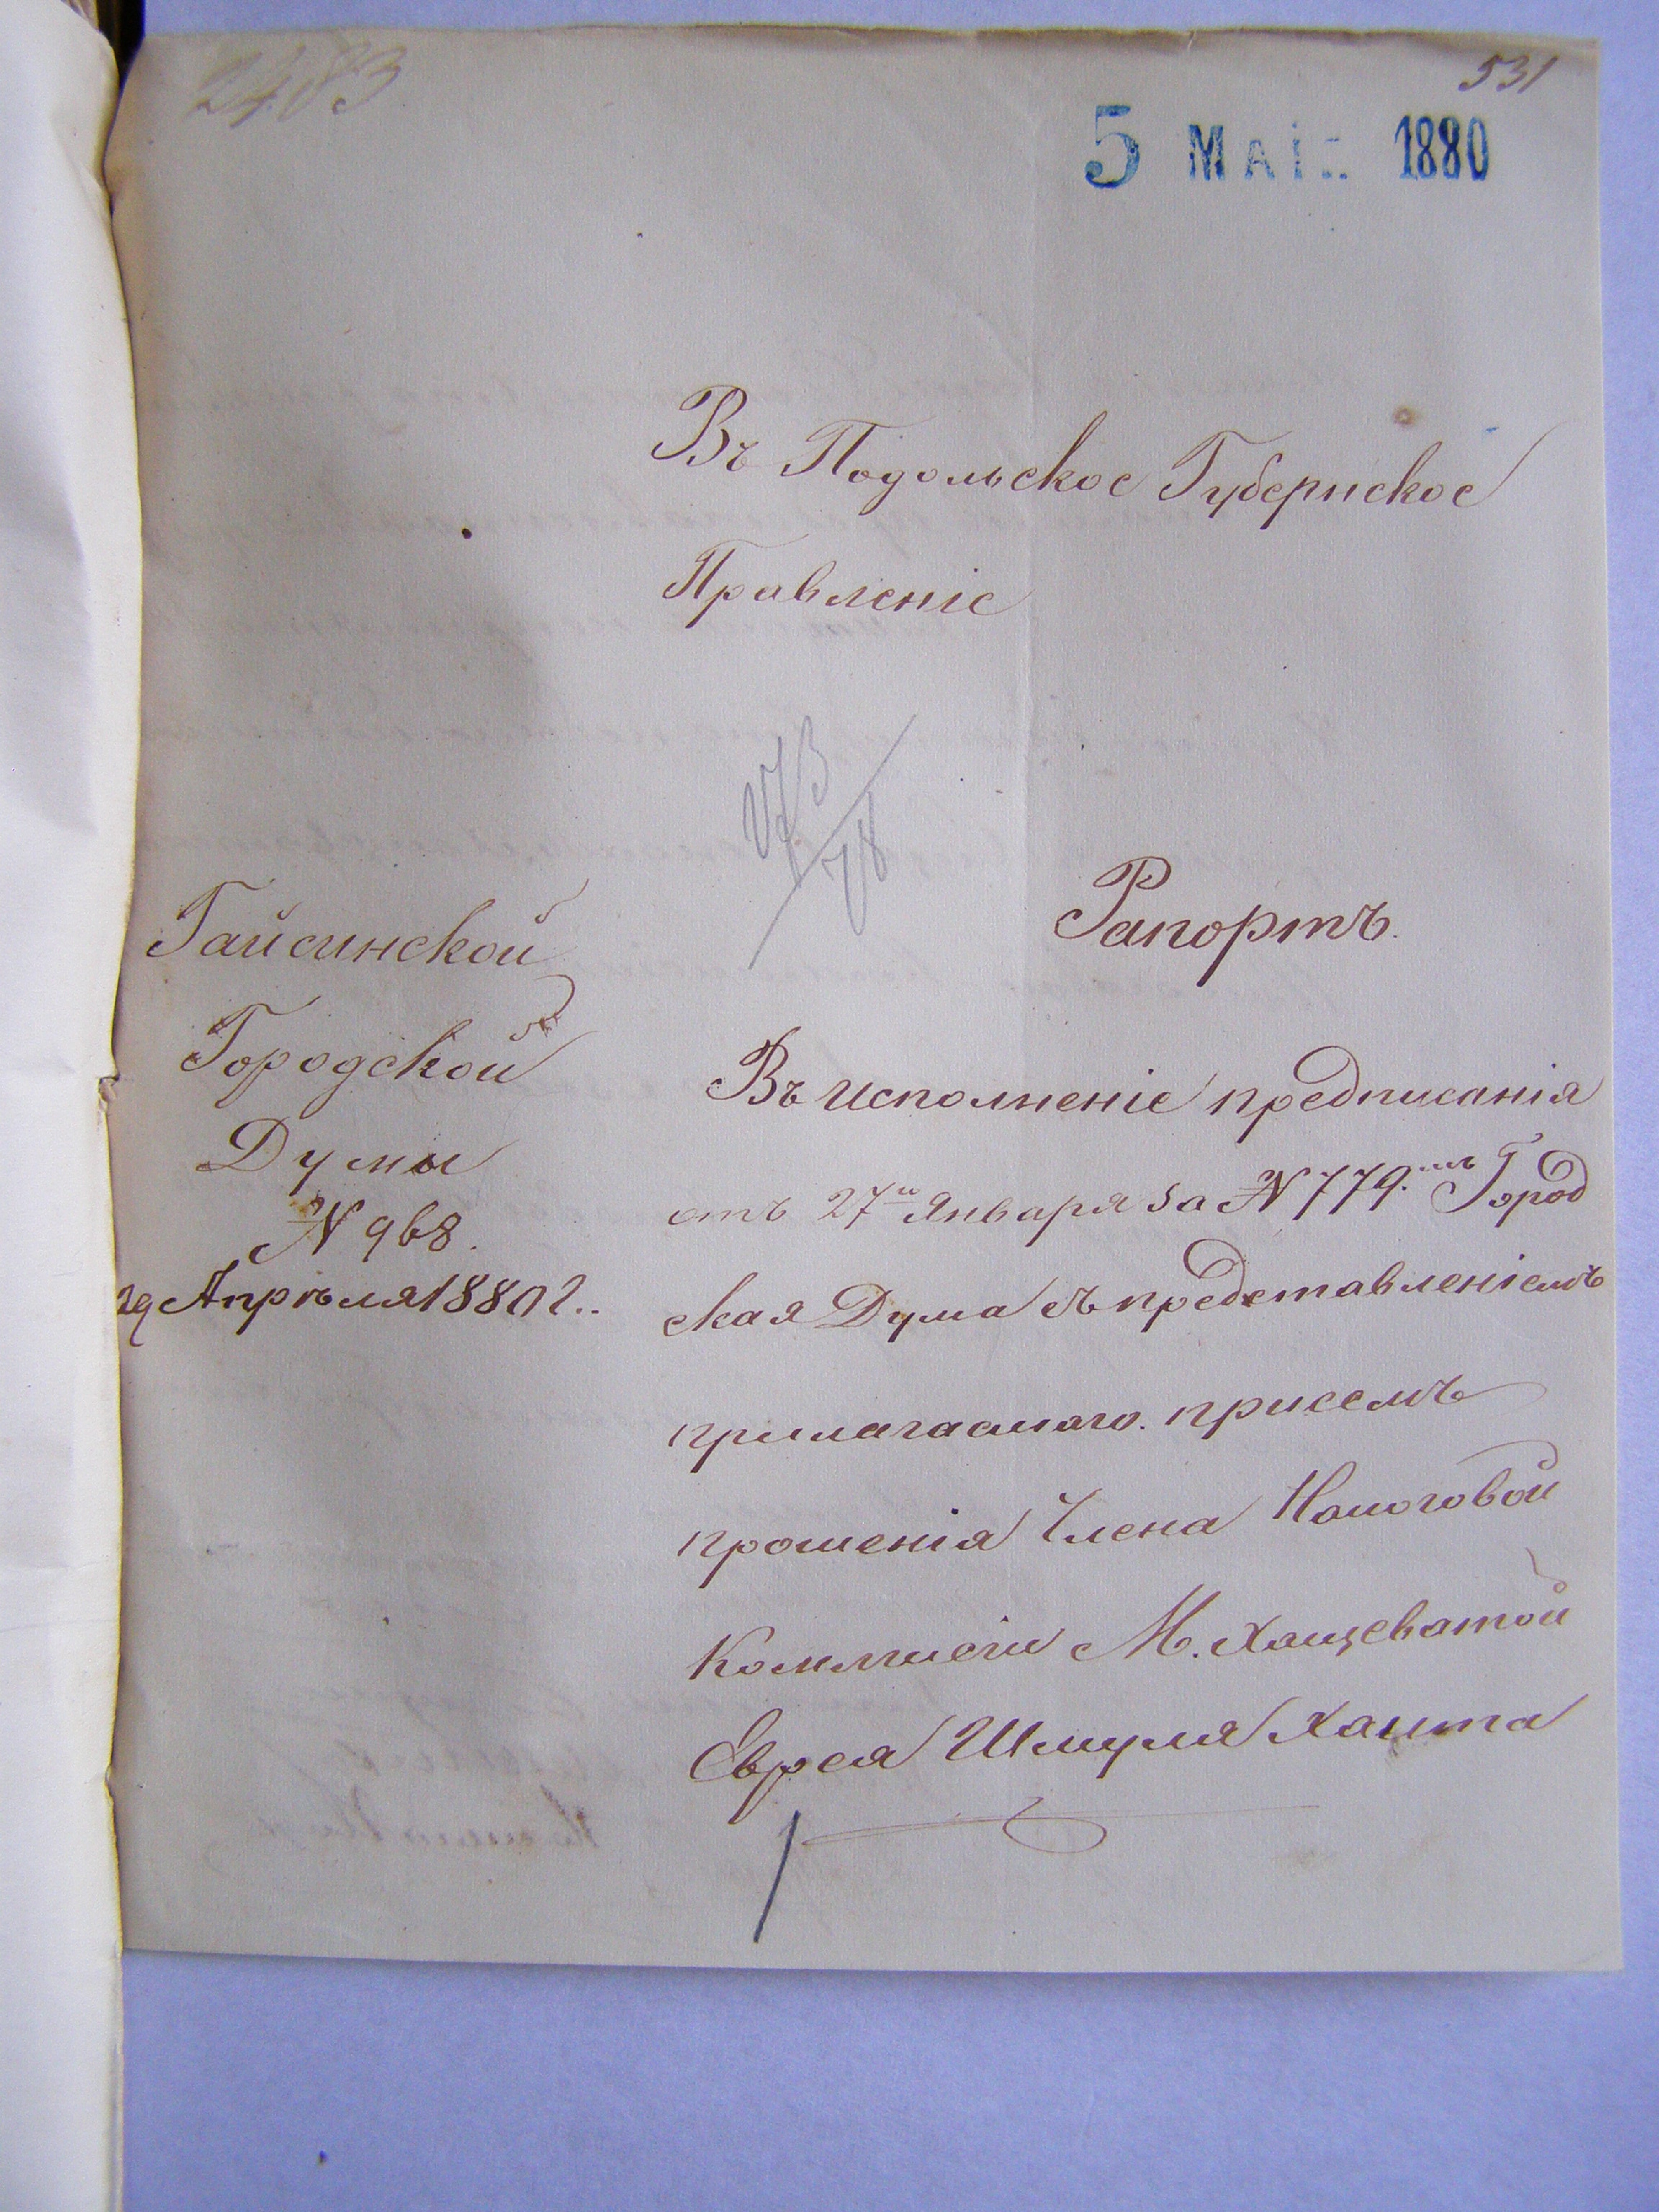 2483
531
5 Маі 1880
Въ Подольское Губернское
Правленіе
Рапортъ.
Гайсинской
Городской
Думы
№ 968.
29 Апрѣля 1880 г.
Въ исполненіе предписанія
отъ 27 Января за № 779. Город
ская Дума съ представленіемъ
прилагаемаго. присемъ
прошенія Члена Налоговой
Коммисіи М. Хащеватой
Еврея Шмуля Хаита